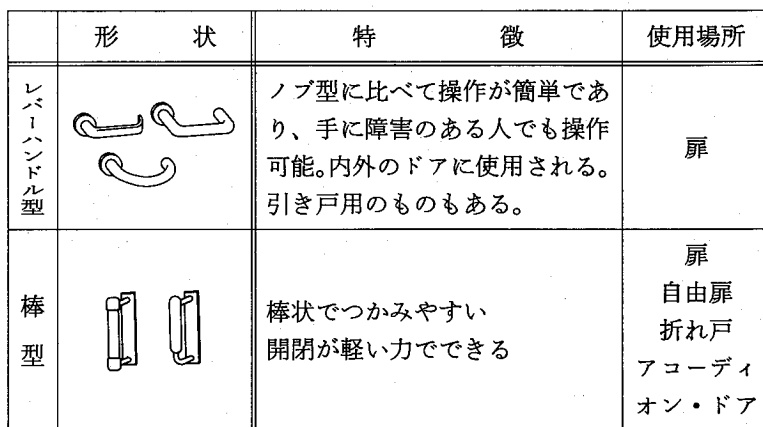 形状 特徴 使用場所
レバーハンドル型
ノブ型に比べて操作が簡単であ
り、手に障害のある人でも操作
可能。内外のドアに使用される。
引き戸用のものもある。
扉
棒型
棒状でつかみやすい
開閉が軽い力でできる
扉
自由扉
折れ戸
アコーディ
オン・ドア